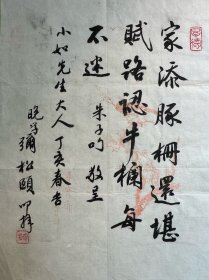 家添豚柵還堪
賦路認牛欄每
不迷
朱子句敬呈
小如先生大人丁亥春吉
晚学彌松頤叩拜